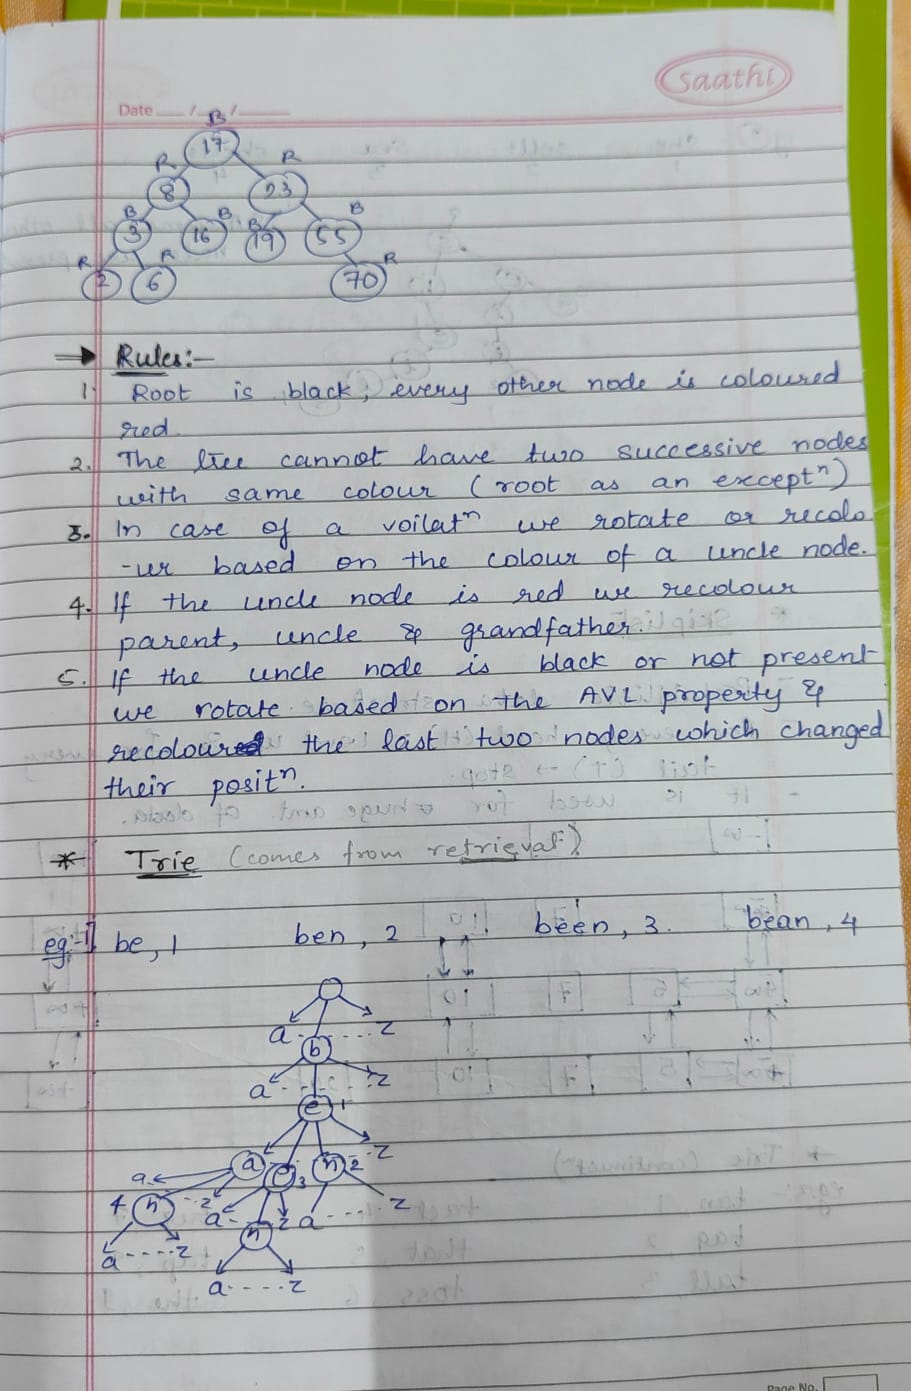 Saathi
Date __/__/____
B
17
R R
8 23
B B B B
3 16 19 55
R R R
2 6 70
→ Rules:-
1. Root is black; every other node is coloured
red.
2. The tree cannot have two successive nodes
with same colour (root as an exceptⁿ)
3. In case of a voilatⁿ we rotate or recolo
-ur based on the colour of a uncle node.
4. If the uncle node is red we recolour
parent, uncle & grandfather.
5. If the uncle node is black or not present
we rotate based on the AVL property &
recoloured the last two nodes which changed
their positⁿ.
* Trie (comes from retrieval)
eg:-1] be, 1 ben, 2 been, 3. bean, 4
a ..... z
b
a ..... z
e 1
z
a e 3 n 2
a ... z a ... z a ..... z
4 n n
a ..... z
a ..... z
Page No.